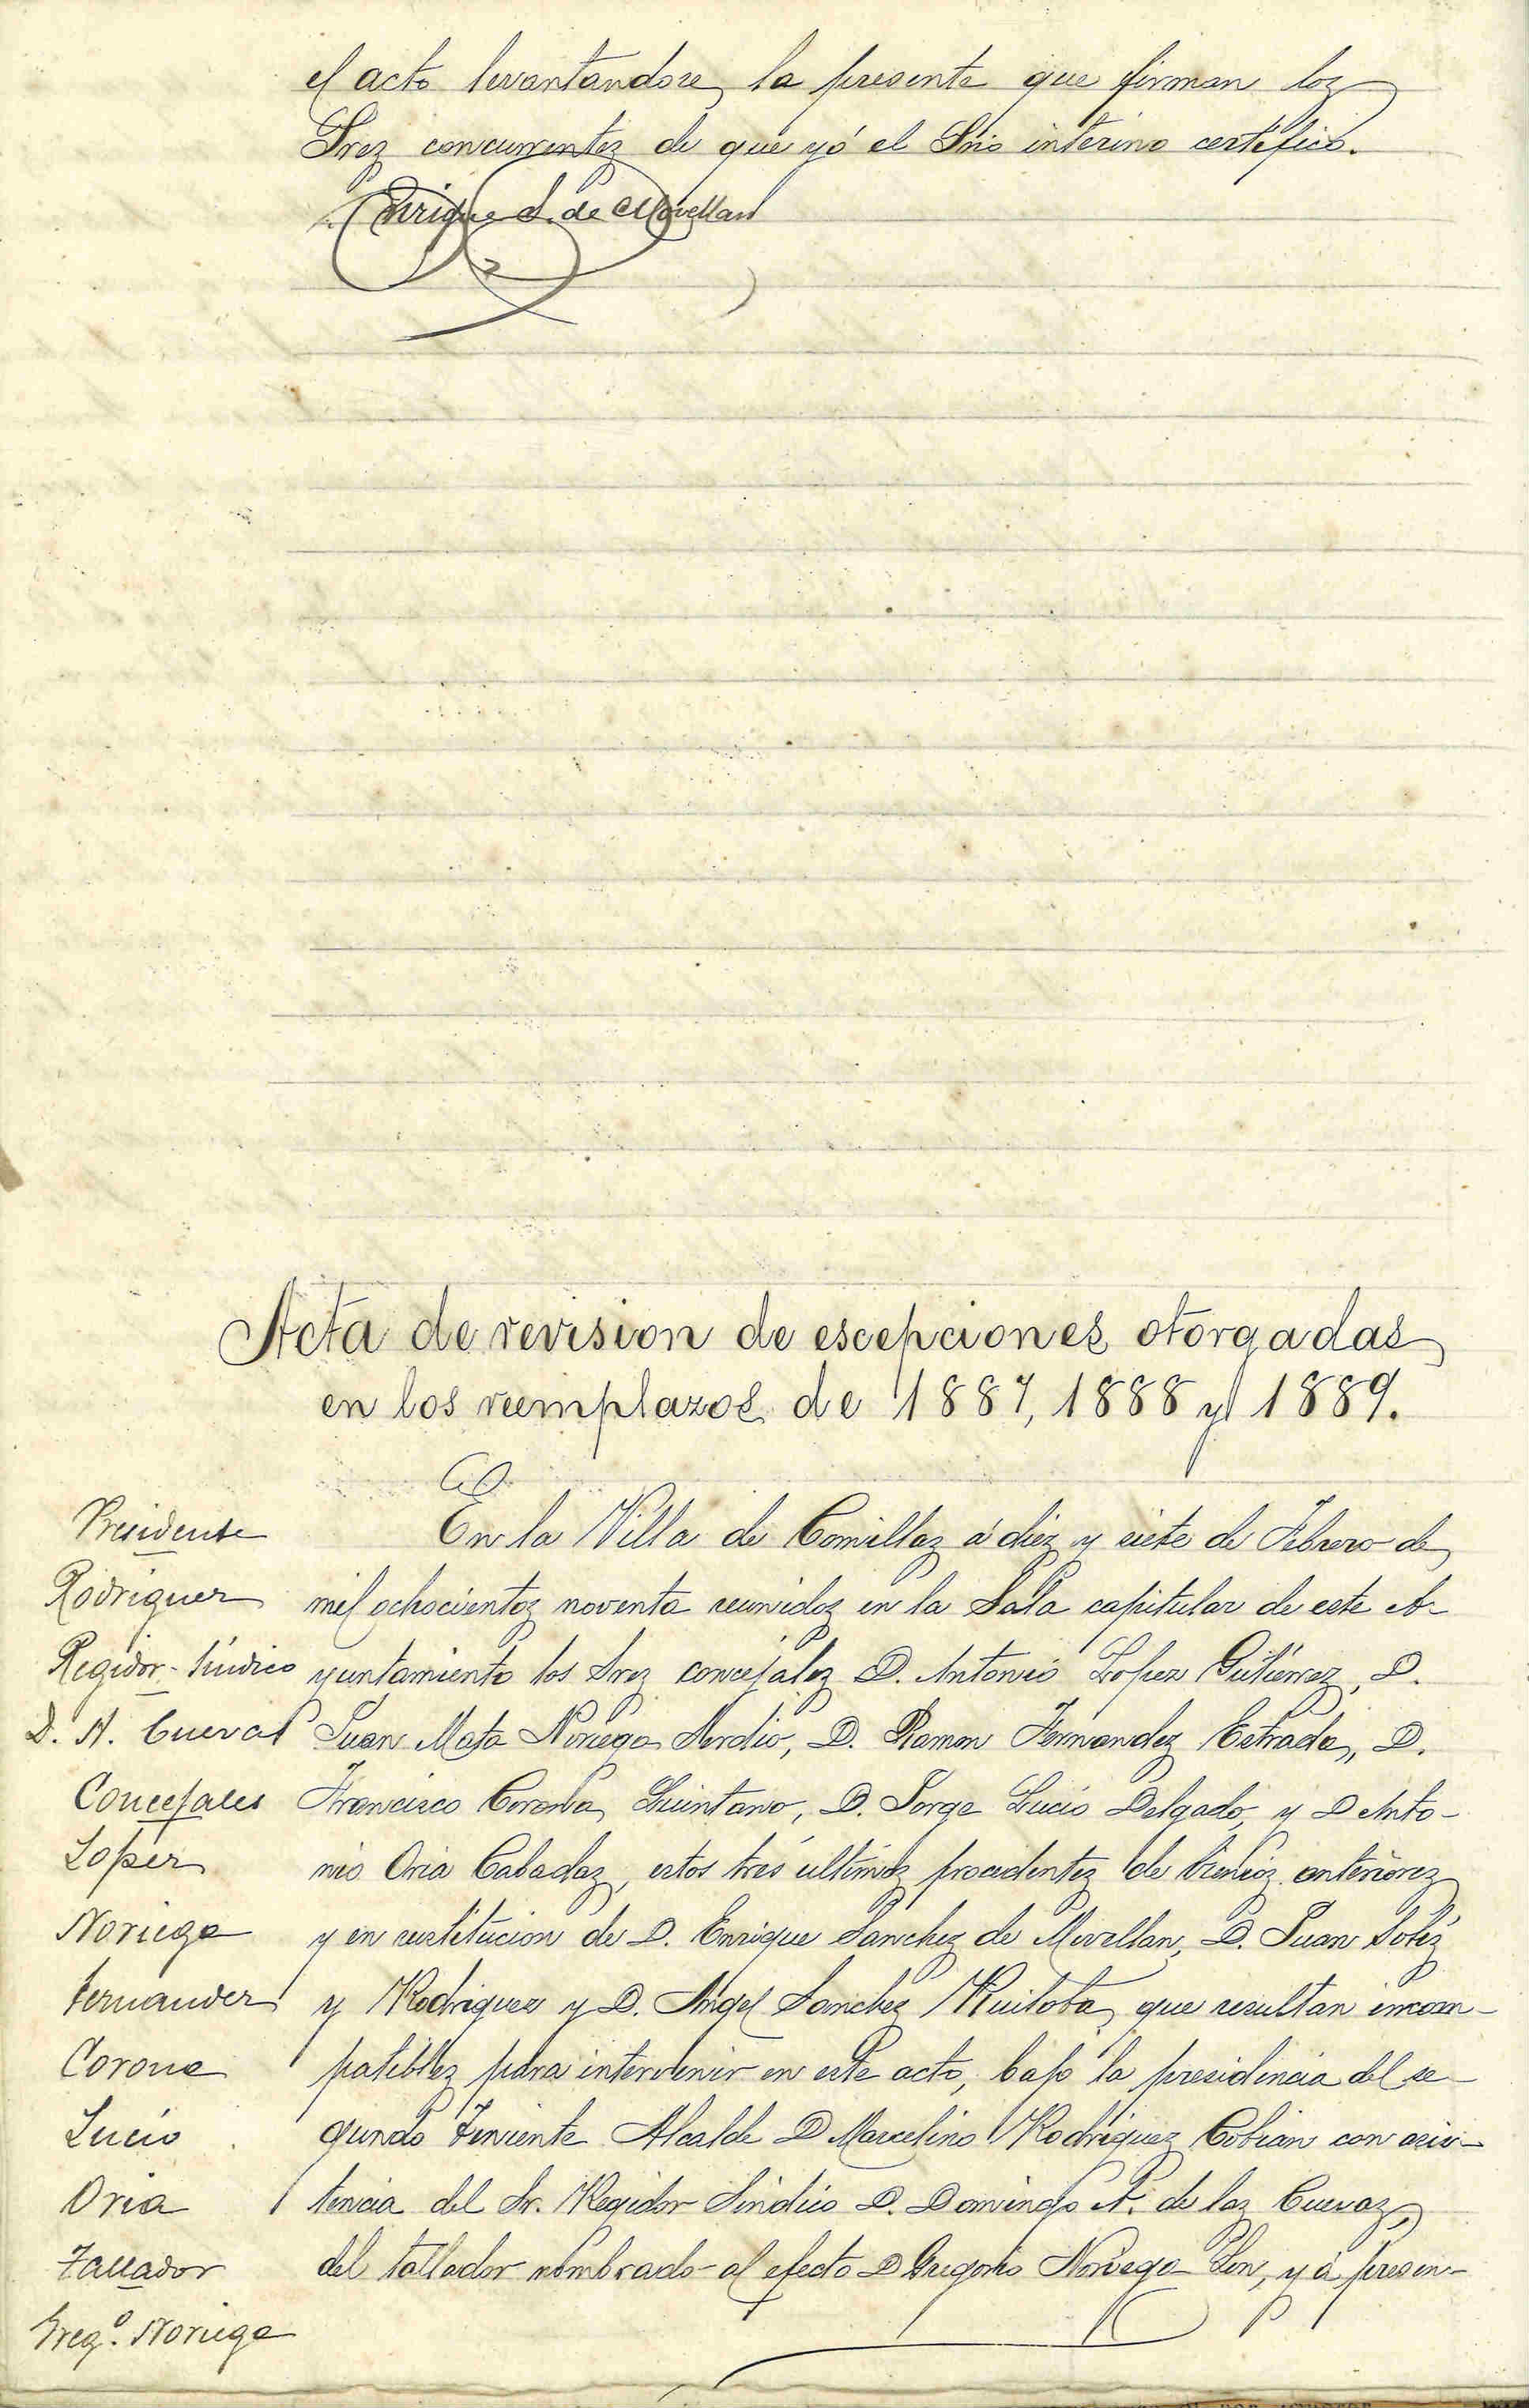 el acto levantandose la presente que firman los
Sres concurrentes de que yó el Srio interino certifico.
Enrique S. de Movellan
Acta de revision de escepciones otorgadas
en los reemplazos de 1887, 1888 y 1889.
Presidente
Rodriguez
Regidor-Síndico
D. A. Cuevas
Concejales
Lopez
Noriega
Fernandez
Corona
Lucio
Oria
Tallador
Greg.º Noriega
En la Villa de Comillas á diez y siete de Febrero de
mil ochocientos noventa reunidos en la Sala capitular de este A-
yuntamiento los Sres concejales D. Antonio Lopez Gutiérrez, D.
Juan Mata Noriega Merdio, D. Ramon Fernandez Estrada, D.
Francisco Corona Quintano, D. Jorge Lucio Delgado, y D Anto-
nio Oria Cabadas, estos tres últimos procedentes de bienios anteriores
y en sustitucion de D. Enrique Sanchez de Movellan, D. Juan Solis
y Rodriguez y D. Angel Sanchez Ruiloba, que resultan incom-
patibles para intervenir en este acto, bajo la presidencia del se-
gundo Teniente Alcalde D Marcelino Rodriguez Cobian con asis-
tencia del Sr. Regidor Sindico D. Domingo A. de las Cuevas,
del tallador nombrado al efecto D Gregorio Noriega Pon, y á presen-